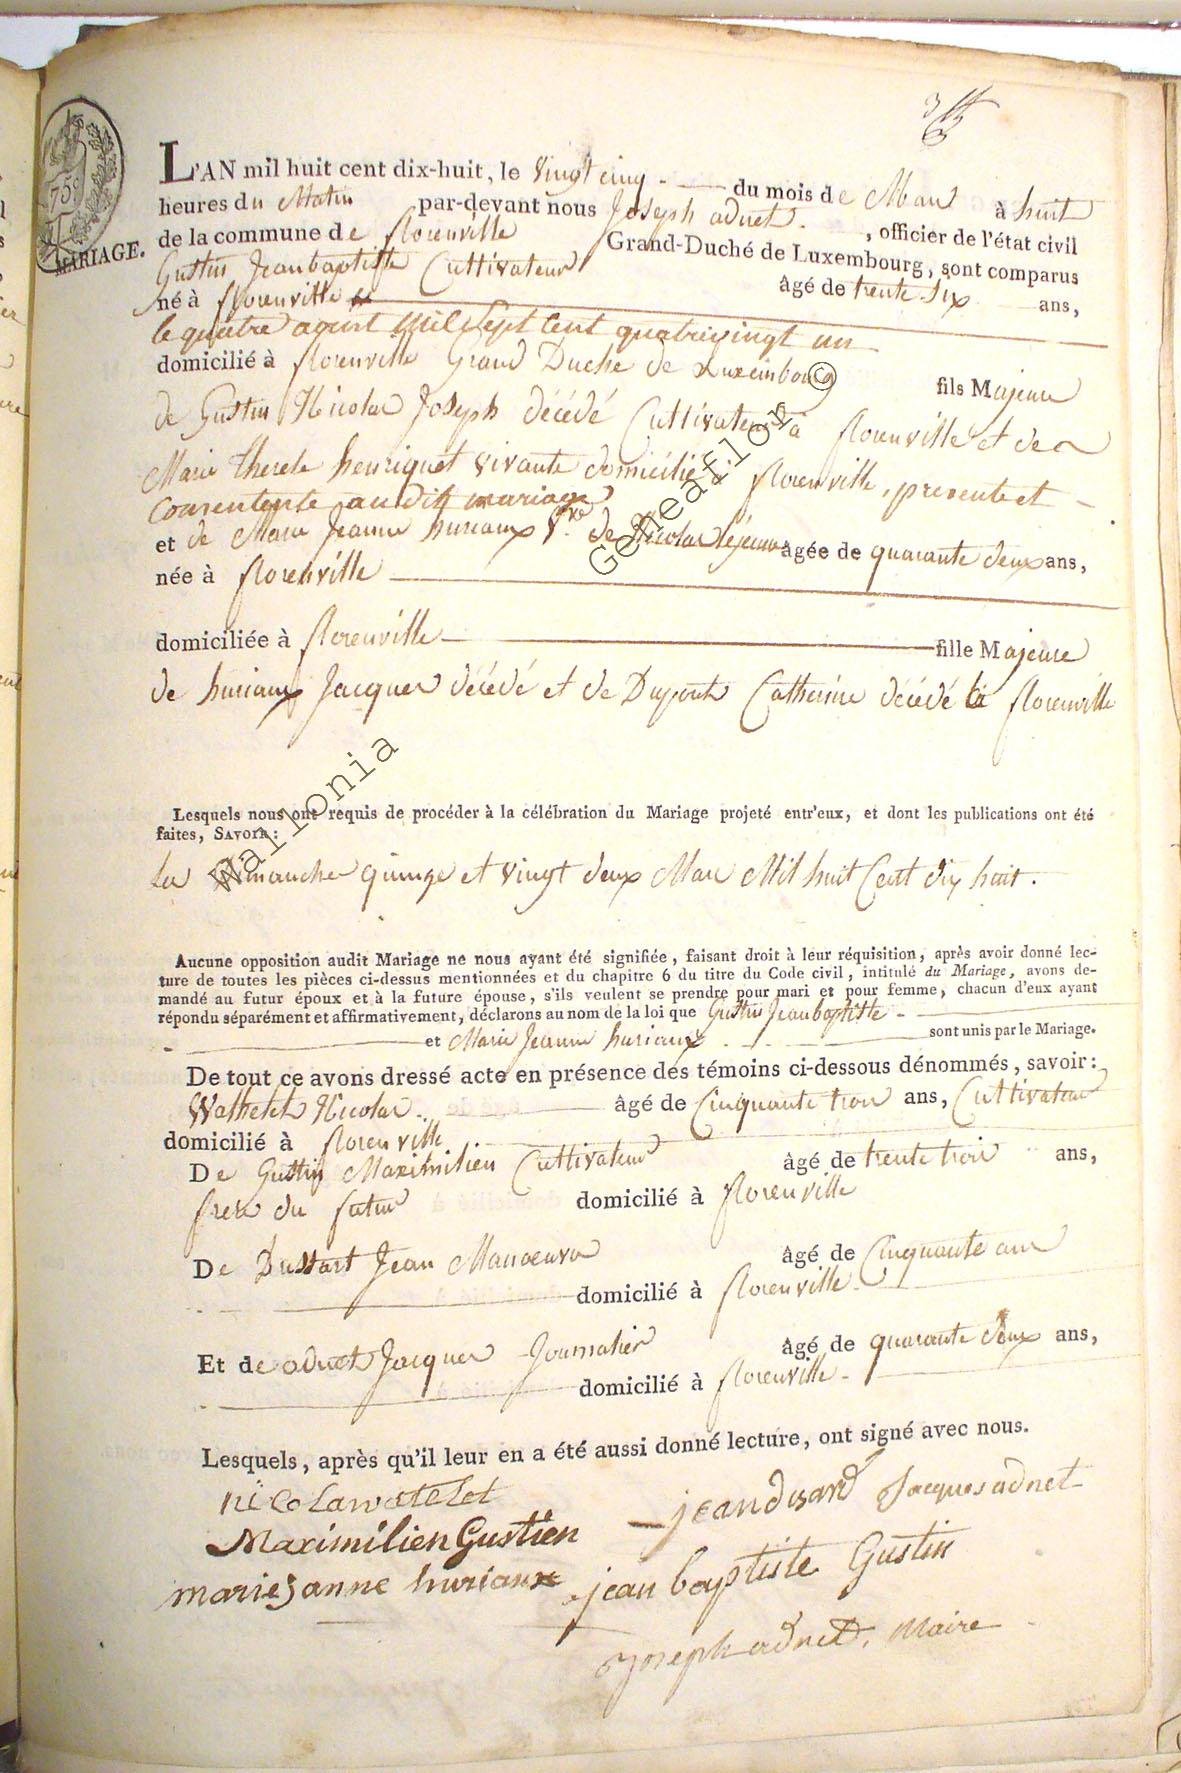 75c
MARIAGE.
L'AN mil huit cent dix-huit, le vingt cinq du mois de Mars à huit
heures du Matin par-devant nous Joseph adnet, officier de l'état civil
de la commune de florenville Grand-Duché de Luxembourg, sont comparus
Gustin Jeanbaptiste Cultivateur âgé de trente Six ans,
né à florenville
le quatre aoust Mil Sept Cent quatrevingt un
domicilié à florenville Grand Duché de Luxembourg fils Majeure
de Gustin Nicolas Joseph décédé Cultivateur à florenville et de
Marie therese henriquet vivante domicilié à florenville, presente et
consentente audit mariage
et de Marie Jeanne huriaux Vve de Nicolas lejeune âgée de quarante deux ans,
née à florenville
domiciliée à florenville fille Majeure
de huriaux Jacques décédé et de Dupont Catherine décédé à florenville
Lesquels nous ont requis de procéder à la célébration du Mariage projeté entr'eux, et dont les publications ont été
faites, SAVOIR:
Les Dimanches quinze et vingt deux Mars Mil huit Cent dix huit.
Aucune opposition audit Mariage ne nous ayant été signifiée, faisant droit à leur réquisition, après avoir donné lec-
ture de toutes les pièces ci-dessus mentionnées et du chapitre 6 du titre du Code civil, intitulé du Mariage, avons de-
mandé au futur époux et à la future épouse, s'ils veulent se prendre pour mari et pour femme, chacun d'eux ayant
répondu séparément et affirmativement, déclarons au nom de la loi que Gustin Jeanbaptiste
et Marie Jeanne huriaux sont unis par le Mariage.
De tout ce avons dressé acte en présence des témoins ci-dessous dénommés, savoir:
Wathelet Nicolas âgé de Cinquante trois ans, Cultivateur
domicilié à florenville
De Gustin Maximilien Cultivateur âgé de trente trois ans,
frere du futur domicilié à florenville
De Dussart Jean Manoeuvre âgé de Cinquante ans
domicilié à florenville
Et de adnet Jacques Journalier âgé de quarante deux ans,
domicilié à florenville
Lesquels, après qu'il leur en a été aussi donné lecture, ont signé avec nous.
nicolawatelet jeandusard Jacques adnet
Maximilien Gustien
marie janne huriaux jean baptiste Gustin
Joseph adnet, Maire
Geneaflor ©
Wallonia